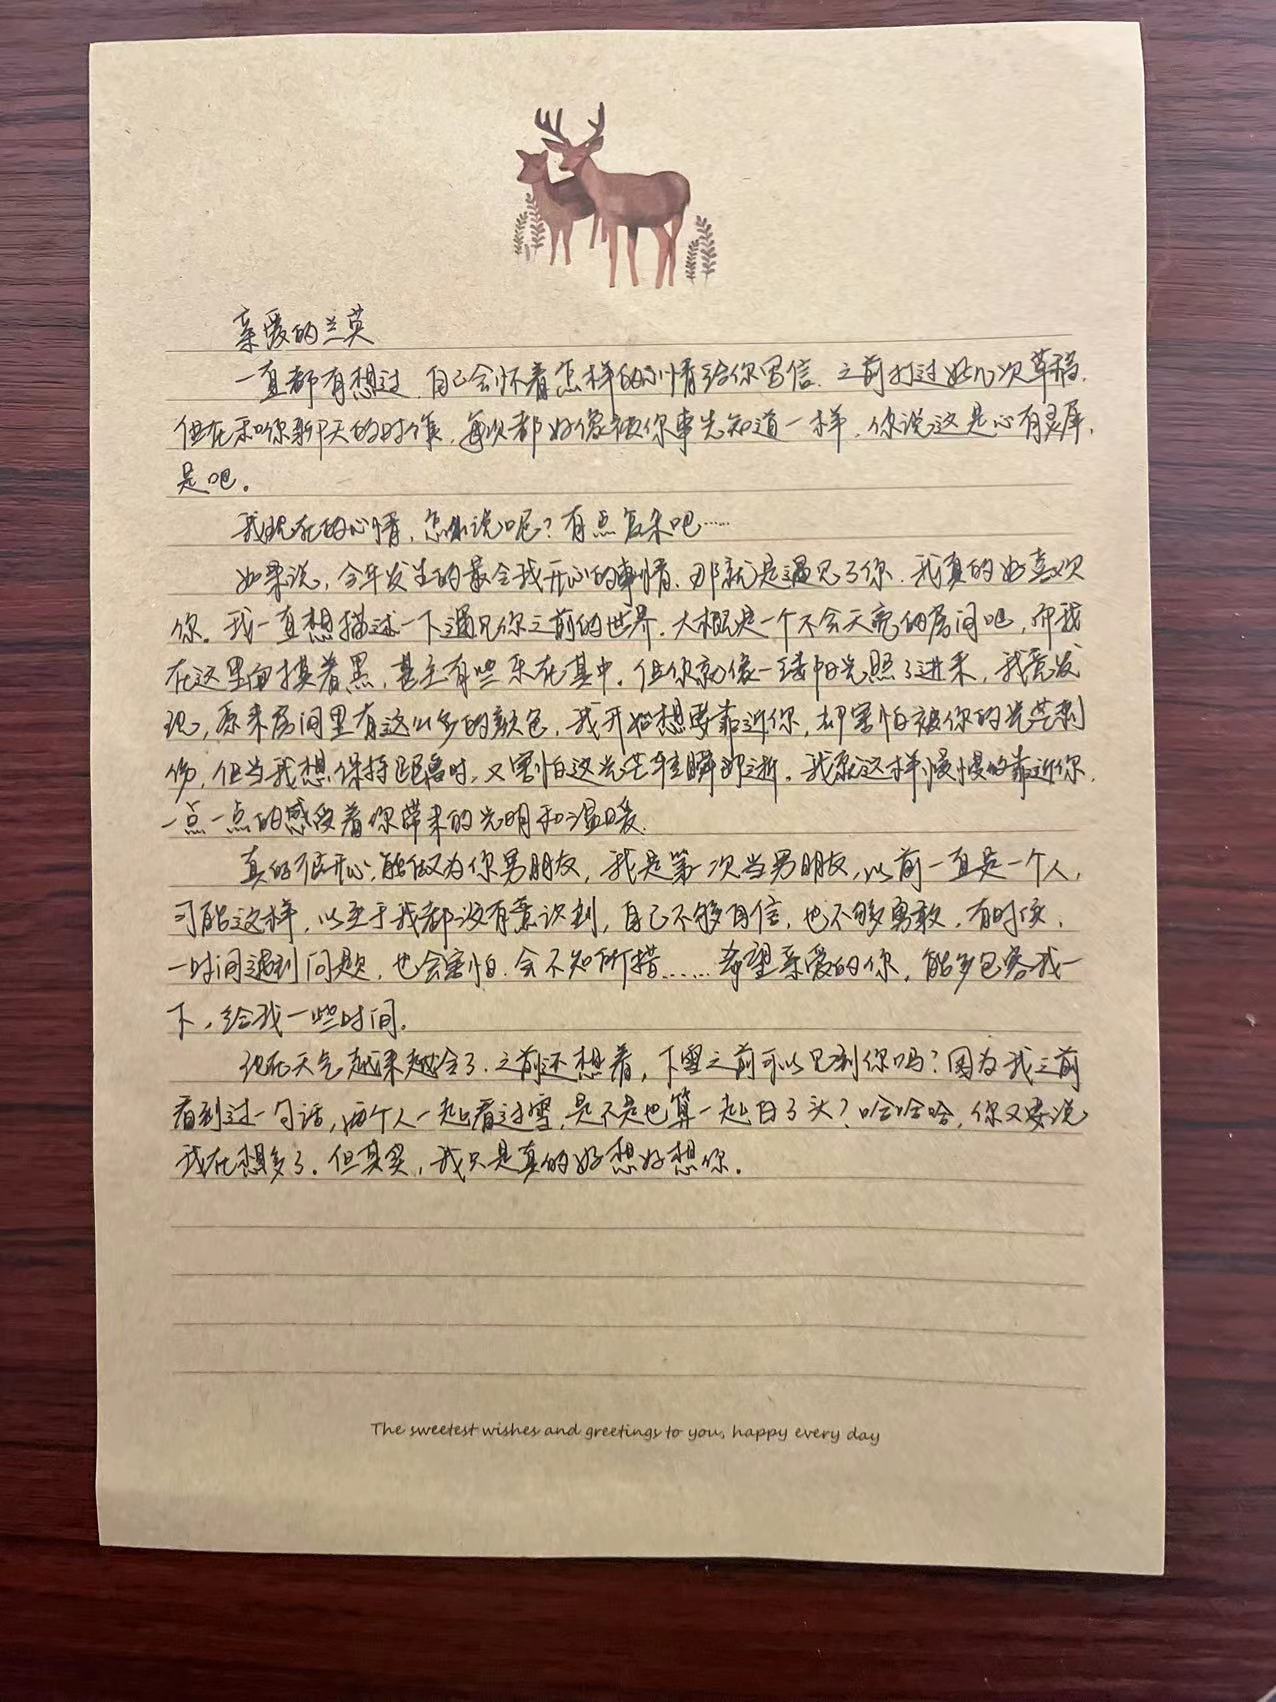 亲爱的兰英
一直都有想过，自己会怀着怎样的心情给你写信，之前打过好几次草稿，
但在和你聊天的时候，每次都好像被你事先知道一样，你说这是心有灵犀，
是吧。
我现在的心情，怎么说呢？有点复杂吧……
如果说，今年发生的最令我开心的事情，那就是遇见了你，我真的好喜欢
你。我一直想描述一下遇见你之前的世界，大概是一个不会天亮的房间吧，而我
在这里面摸着黑，甚至有些乐在其中。但你就像一缕阳光照了进来，我竟发
现，原来房间里有这么多的颜色，我开始想要靠近你，却害怕被你的光芒刺
伤，但当我想保持距离时，又害怕这光芒转瞬即逝。我就这样慢慢的靠近你，
一点一点的感受着你带来的光明和温暖。
真的很开心，能做为你男朋友，我是第一次当男朋友，以前一直是一个人，
习惯这样，以至于我都没有意识到，自己不够自信，也不够勇敢，有时候，
一时间遇到问题，也会害怕，会不知所措……希望亲爱的你，能多包容我一
下，给我一些时间。
现在天气越来越冷了，之前还想着，下雪之前可以见到你吗？因为我之前
看到过一句话，两个人一起看过雪，是不是也算一起白了头？哈哈哈，你又要说
我在想多了，但其实，我只是真的好想好想你。
The sweetest wishes and greetings to you, happy every day